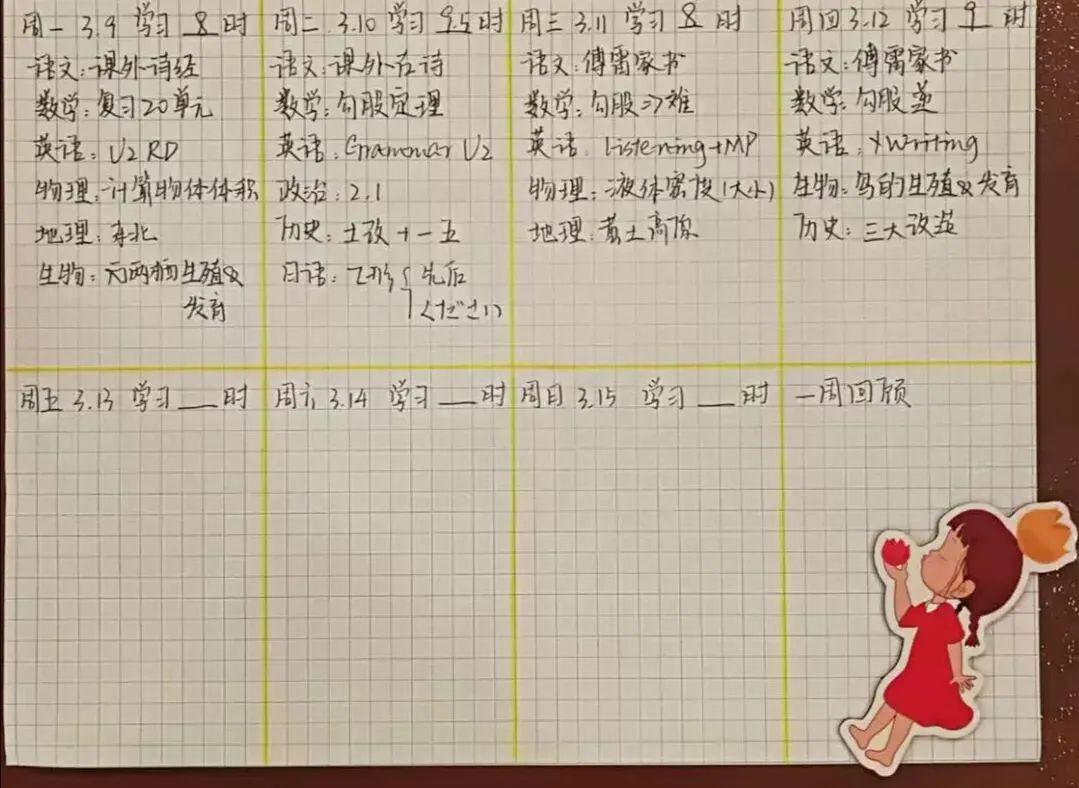 周一 3.9 学习 8 时
语文：课外诗经
数学：复习20单元
英语：U2 RD
物理：计算物体体积
地理：东北
生物：无两栖生殖&
发育
周二 3.10 学习 9.5 时
语文：课外古诗
数学：勾股定理
英语：Grammar U2
政治：2.1
历史：土改+一五
日语：て形 先后
ください
周三 3.11 学习 8 时
语文：傅雷家书
数学：勾股⇒难
英语：listening+MP
物理：液体密度(大小)
地理：黄土高原
周四 3.12 学习 9 时
语文：傅雷家书
数学：勾股逆
英语：Writing
生物：鸟的生殖&发育
历史：三大改造
周五 3.13 学习 __ 时
周六 3.14 学习 __ 时
周日 3.15 学习 __ 时
一周回顾